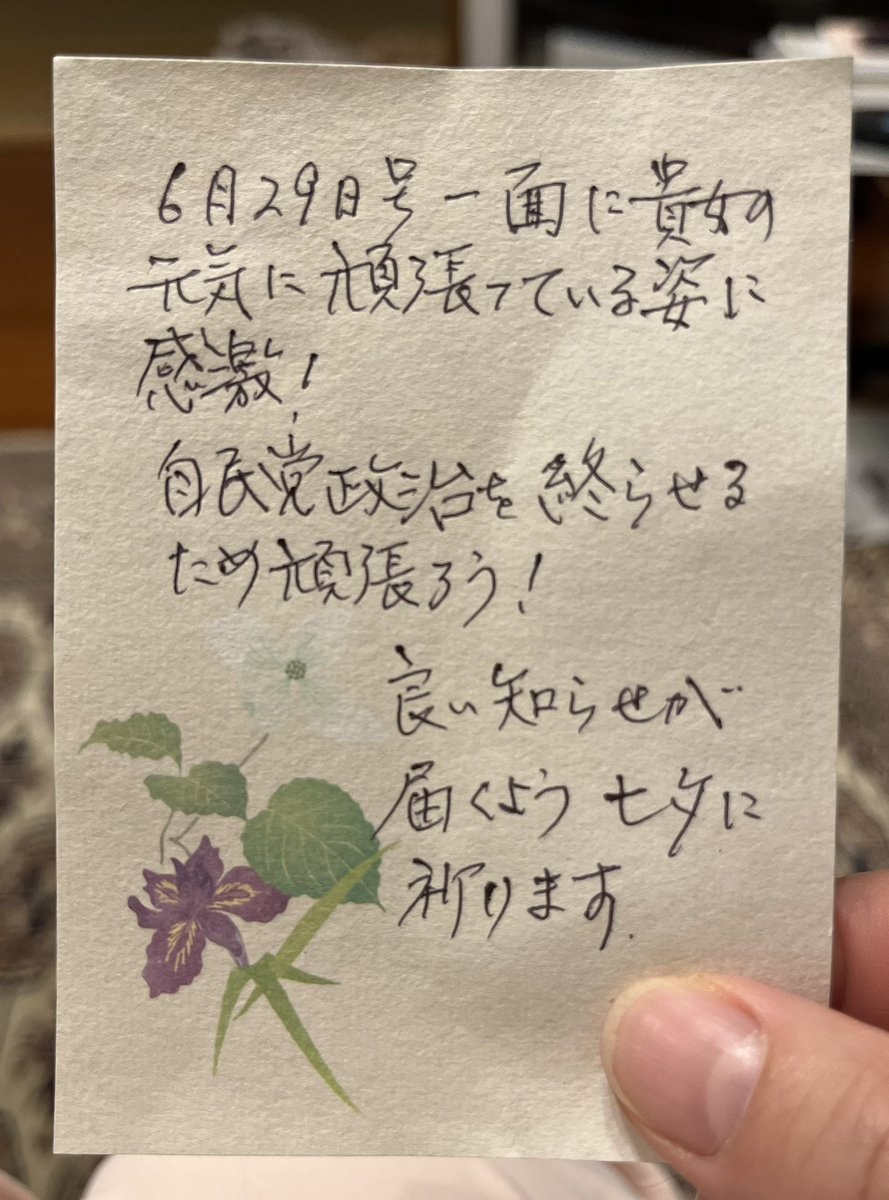 6月29日号一面に貴女の
元気に頑張っている姿に
感激！
自民党政治を終らせる
ため頑張ろう！
良い知らせが
届くよう七夕に
祈ります.